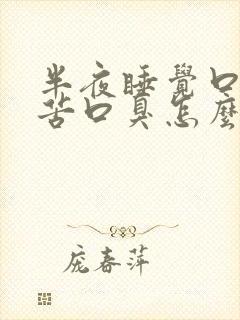 半夜睡覺口
苦口臭怎麼
龐春萍